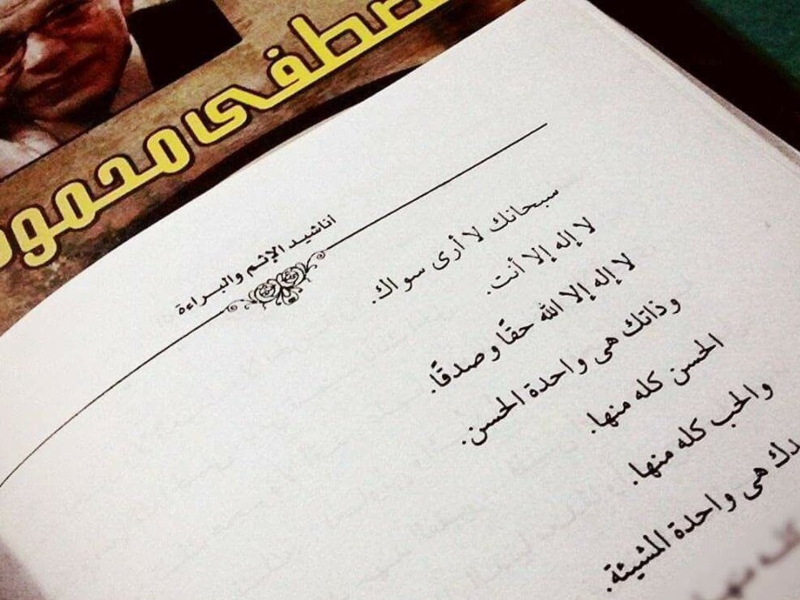 مصطفى محمود
اناشيد الإثم والبراءة
سبحانك لا أرى سواك.
لا إله إلا أنت.
لا إله إلا الله حقًا وصدقًا.
وذاتك هى واحدة الحسن.
الحسن كله منها.
والحب كله منها.
هى واحدة المشيئة.